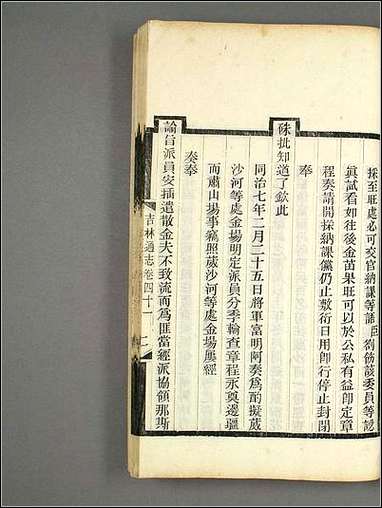 採至旺處必可交官納課等語臣劄飭該委員等認
眞試看如往後金苗果旺可以於公私有益卽定章
程奏請開採納課儻仍止敷衍日用卽行停止封閉
奉
硃批知道了欽此
同治七年二月二十五日將軍富明阿奏爲酌擬葳
沙河等處金場明定派員分季輪查章程永奠邊疆
而肅山場事竊照葳沙河等處金場屢經
奏奉
諭旨派員安插遣散金夫不致流而爲匪當經派協領那斯
吉林通志卷四十一 二